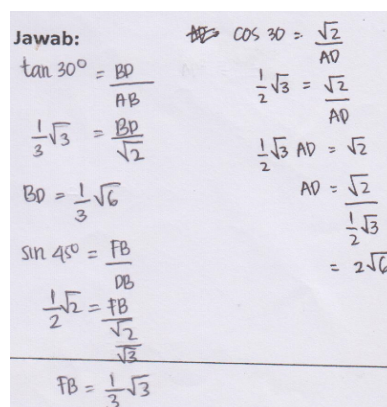 Jawab:
tan 30° = BD / AB
1/3 √3 = BD / √2
BD = 1/3 √6
sin 45° = FB / DB
1/2 √2 = FB / (√2 / √3)
FB = 1/3 √3
cos 30 = √2 / AD
1/2 √3 = √2 / AD
1/2 √3 AD = √2
AD = √2 / (1/2 √3)
= 2√6